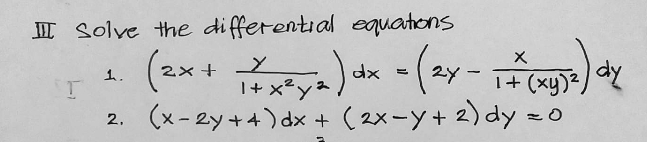 III Solve the differential equations
1. (2x + y/(1 + x²y²)) dx = (2y - x/(1 + (xy)²)) dy
2. (x - 2y + 4) dx + (2x - y + 2) dy = 0